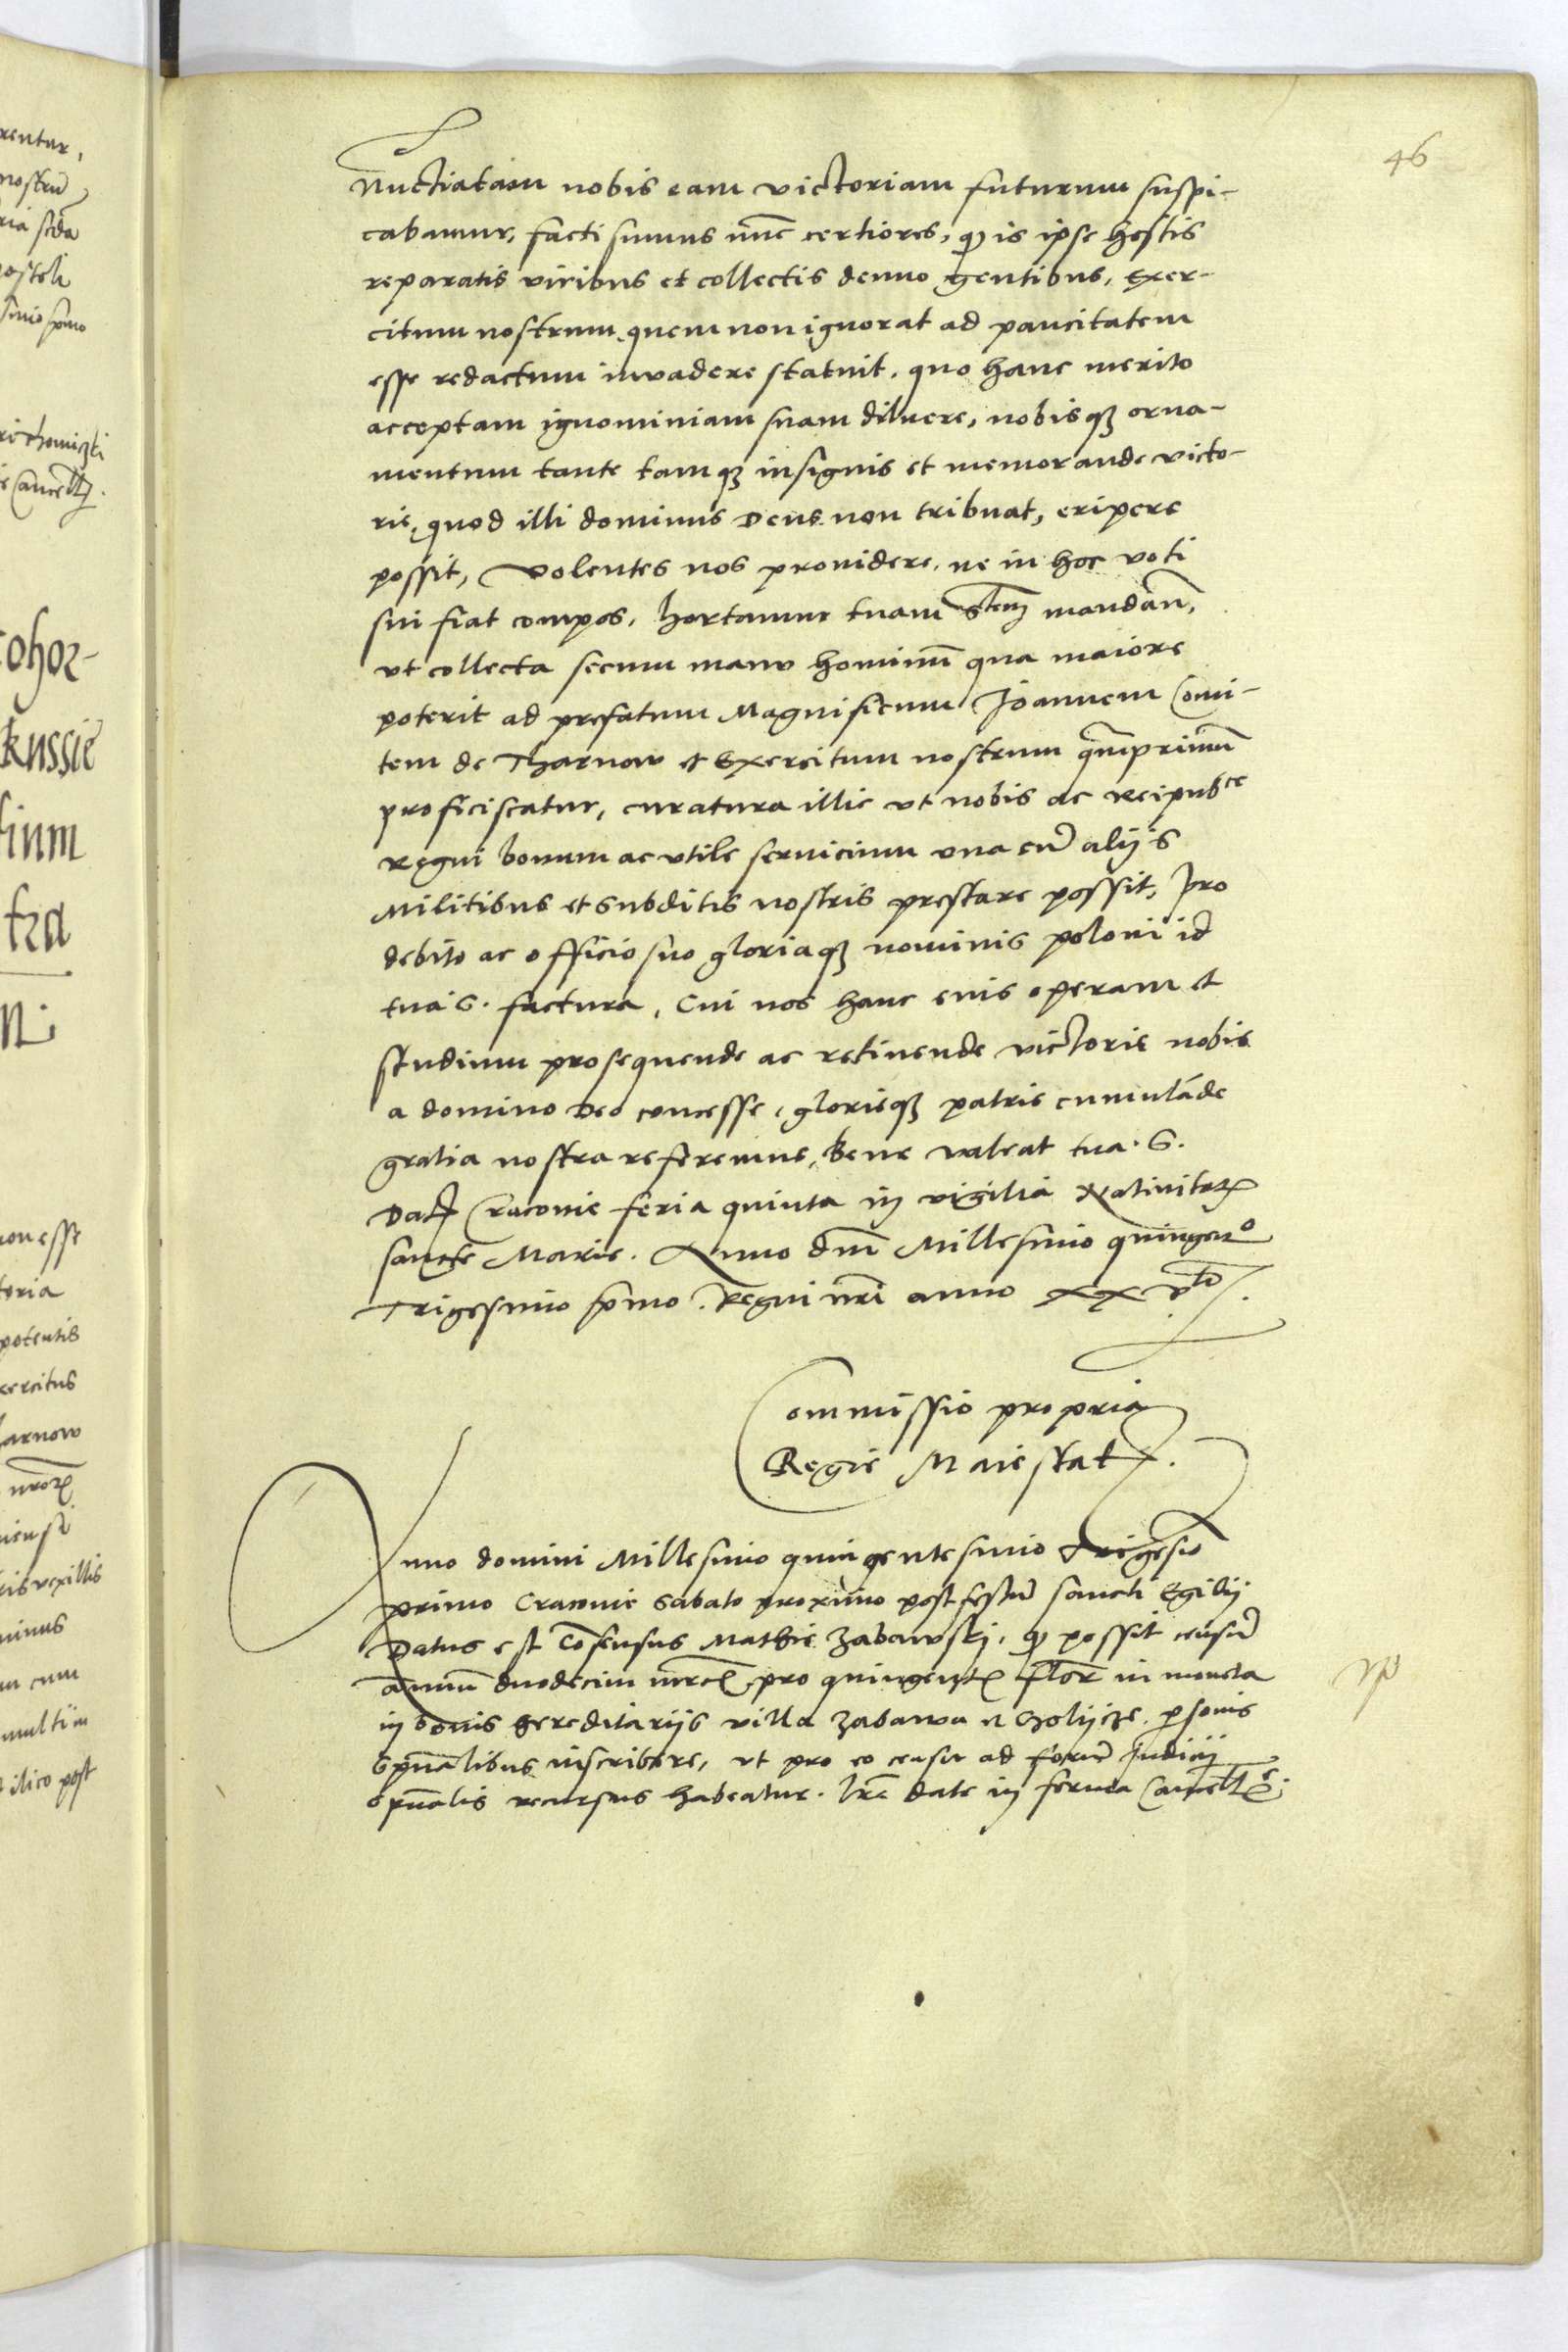 46
Nuctiatam nobis eam victoriam futurum suspi-
cabamur, facti sumus nũc certiores, qđ is ipse hostis
reparatis viribus et collectis denuo gentibus, exer-
citum nostrum quem non ignorat ad paucitatem
esse redactum invadere statuit, quo hanc merito
acceptam ignominiam suam diluere, nobisqꝫ orna-
mentum tante tamqꝫ insignis et memorande victo-
rie, quod illi dominus Deus non tribuat, eripere
possit, Volentes nos providere, ne in hoc voti
sui fiat compos, hortamur tuam Stem mandañ,
vt collecta secum manu hominũ qua maiore
poterit ad prefatum Magnificum Joannem Comi-
tem de Tharnow et Exercitum nostrum qm̃primũ
proficiscatur, curatura illic vt nobis ac reipubce
regni bonum ac vtile servicium vna cũ alijs
Militibus et subditis nostris prestare possit, pro
debito ac officio suo gloriaqꝫ nominis poloni id
tua S. factura, Cui nos hanc eius operam et
studium prosequende ac retinende victorie nobis
a domino Deo concesse, glorieqꝫ patrie cumulãde
gratia nostra referemus, Bene valeat tua. S.
Datꝭ Cracovie feria quinta in vigilia Nativitatꝭ
sancte Marie. Anno dnĩ Millesimo quingeno
Trigesimo primo. Regni nrĩ anno xxvto.
Commissio propria
Regie Maiestatꝭ.
Anno domini Millesimo quingentesimo Trigesio
primo Cracovie Sabato proximo post festũ sancti Egidij
Datus est Cõsensus Mathie Zabawskj, qđ possit censũ
annuũ duodecim mrcꝭ pro quingentꝭ flor in moneta
in bonis hereditarijs villa Zabawa et personis
spũalibus inscribere, vt pro eo censu ad forũ Judicij
spũalis recursus habeatur. Lrẽ date in forma Cancellꝭe.